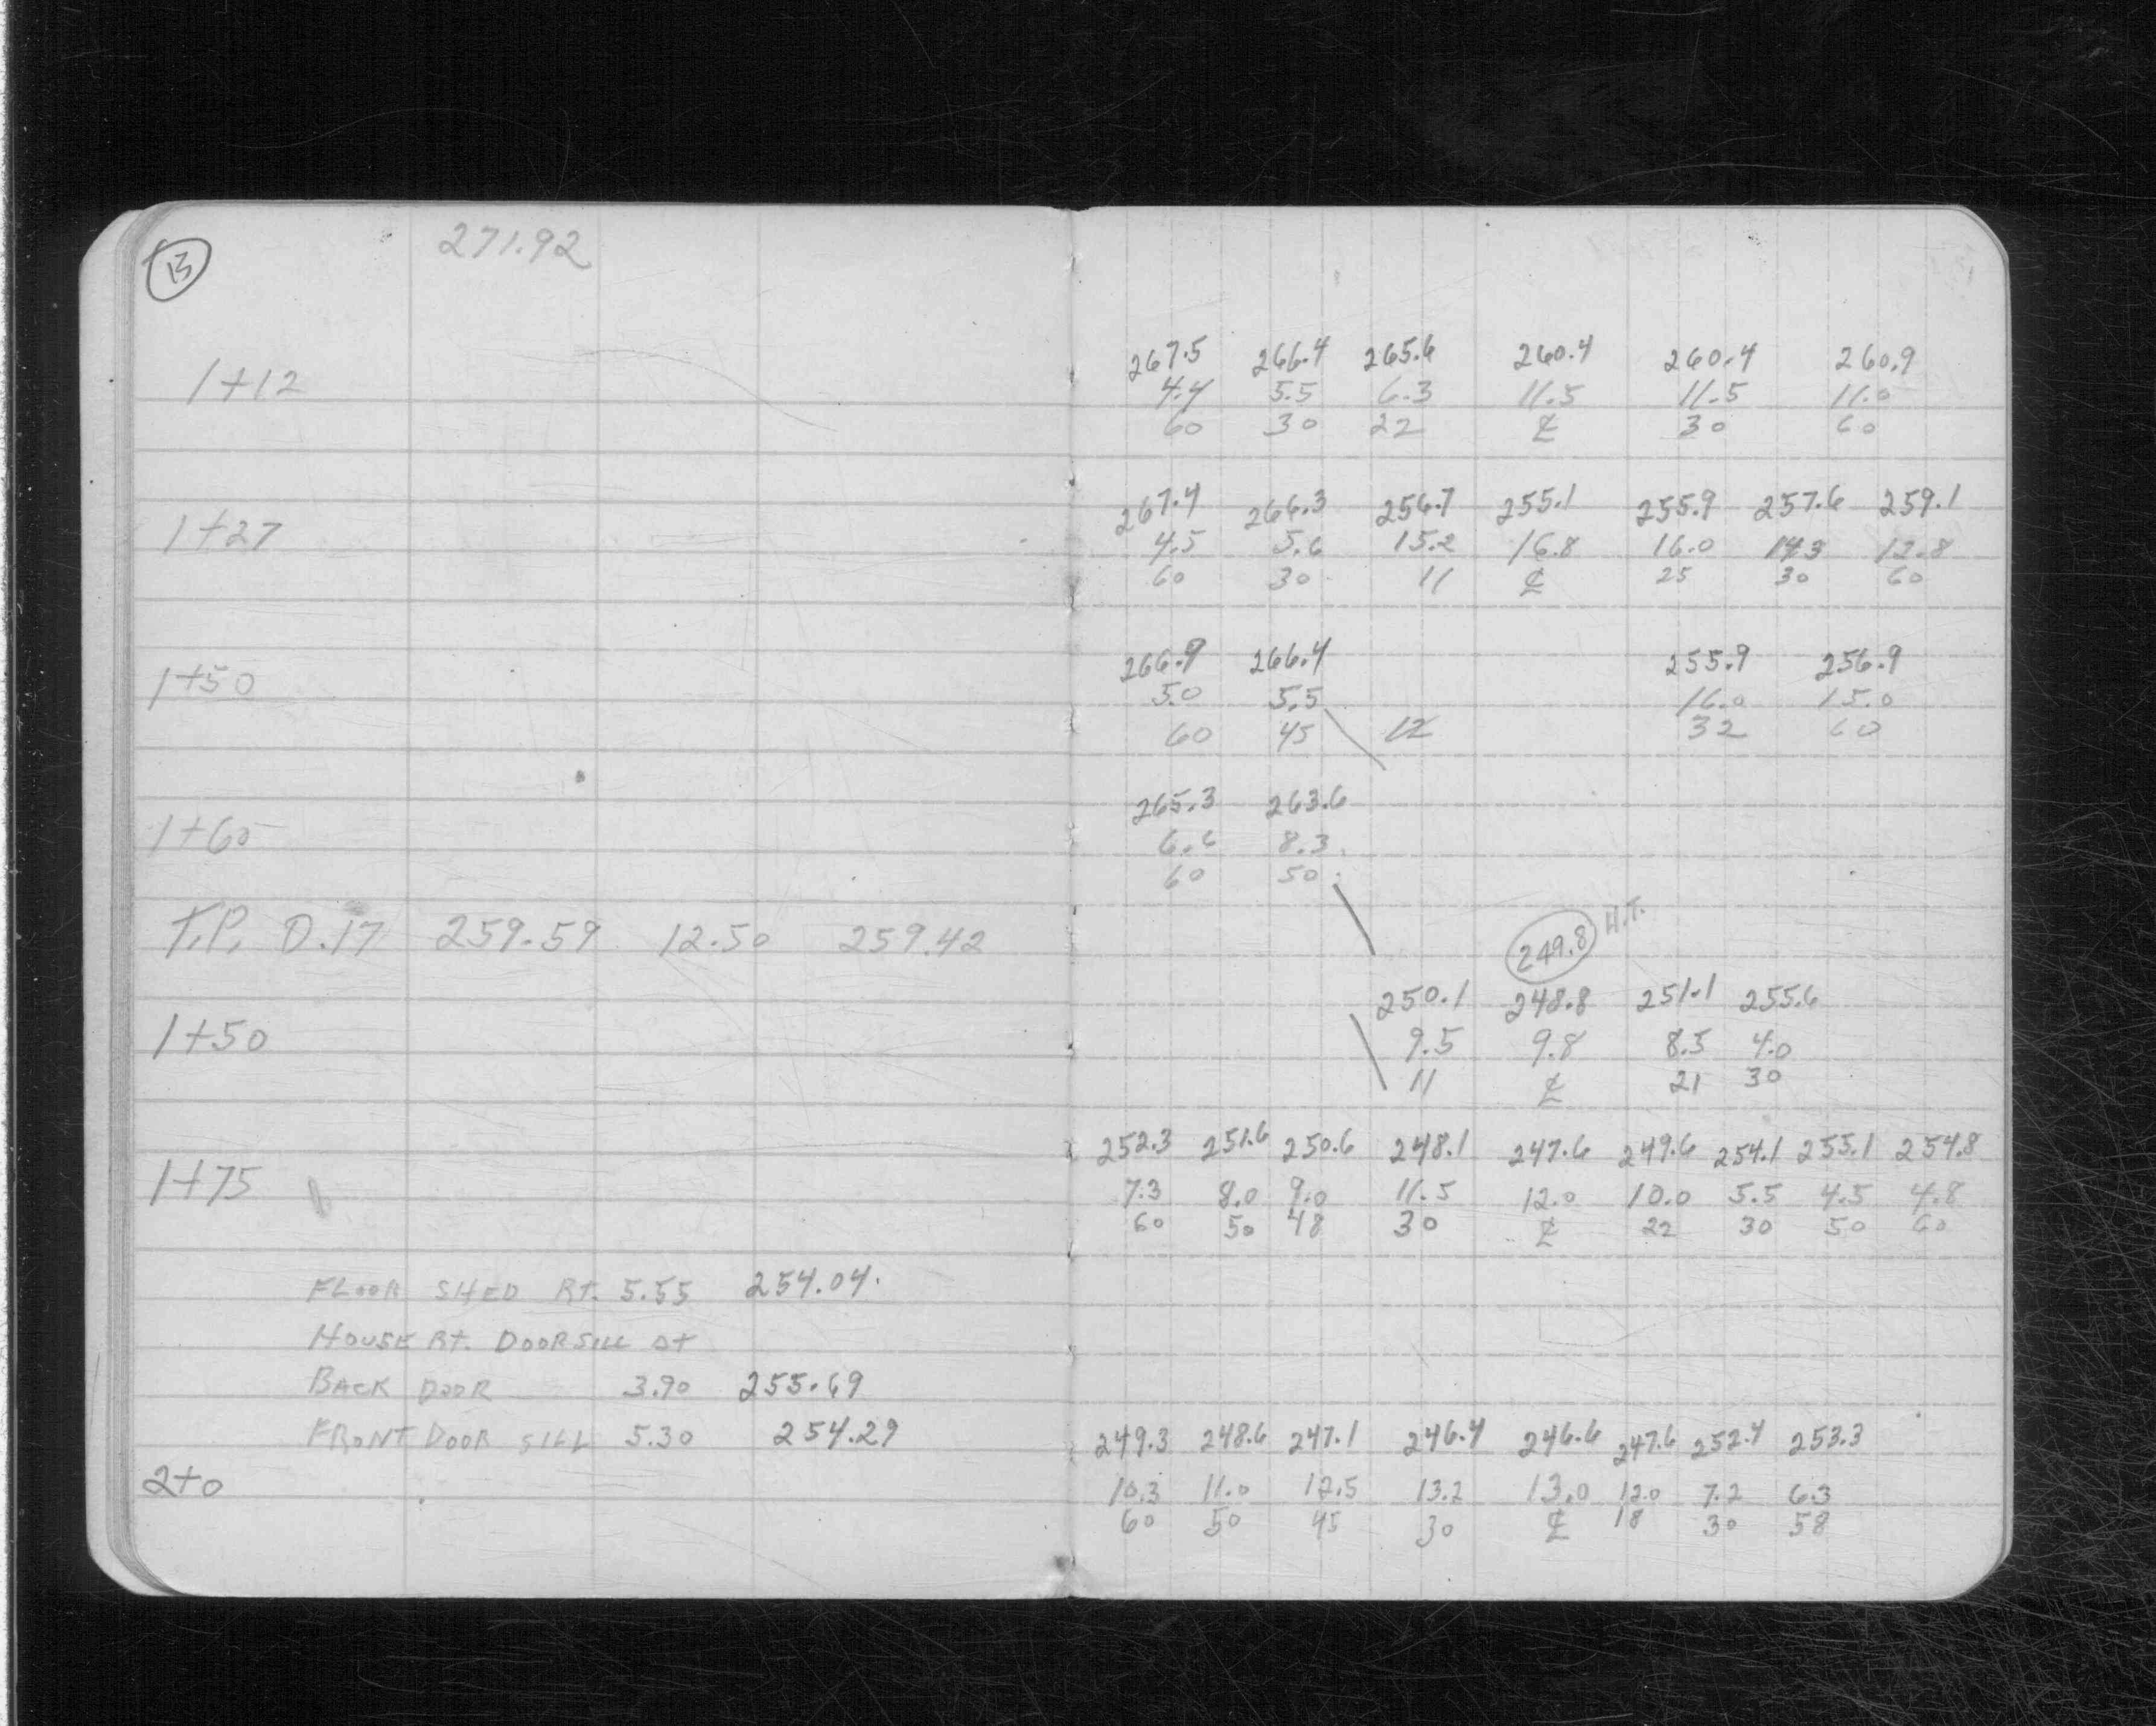 13
271.92
1+12
267.5 266.4 265.6 260.4 260.4 260.9
4.4 5.5 6.3 11.5 11.5 11.0
60 30 22 ℄ 30 60
1+27
267.4 266.3 256.7 255.1 255.9 257.6 259.1
4.5 5.6 15.2 16.8 16.0 14.3 12.8
60 30 11 ℄ 25 30 60
1+50
266.9 266.4 255.9 256.9
5.0 5.5 16.0 15.0
60 45 12 32 60
1+60
265.3 263.6
6.6 8.3
60 50
T.P. 0.17 259.59 12.50 259.42
249.8 H.T.
1+50
250.1 248.8 251.1 255.6
9.5 9.8 8.5 4.0
11 ℄ 21 30
1+75
252.3 251.6 250.6 248.1 247.6 249.6 254.1 255.1 254.8
7.3 8.0 9.0 11.5 12.0 10.0 5.5 4.5 4.8
60 50 48 30 ℄ 22 30 50 60
FLOOR SHED RT. 5.55 254.04
HOUSE RT. DOORSILL AT
BACK DOOR 3.90 255.69
FRONT DOOR SILL 5.30 254.29
2+0
249.3 248.6 247.1 246.4 246.6 247.6 252.4 253.3
10.3 11.0 12.5 13.2 13.0 12.0 7.2 6.3
60 50 45 30 ℄ 18 30 58